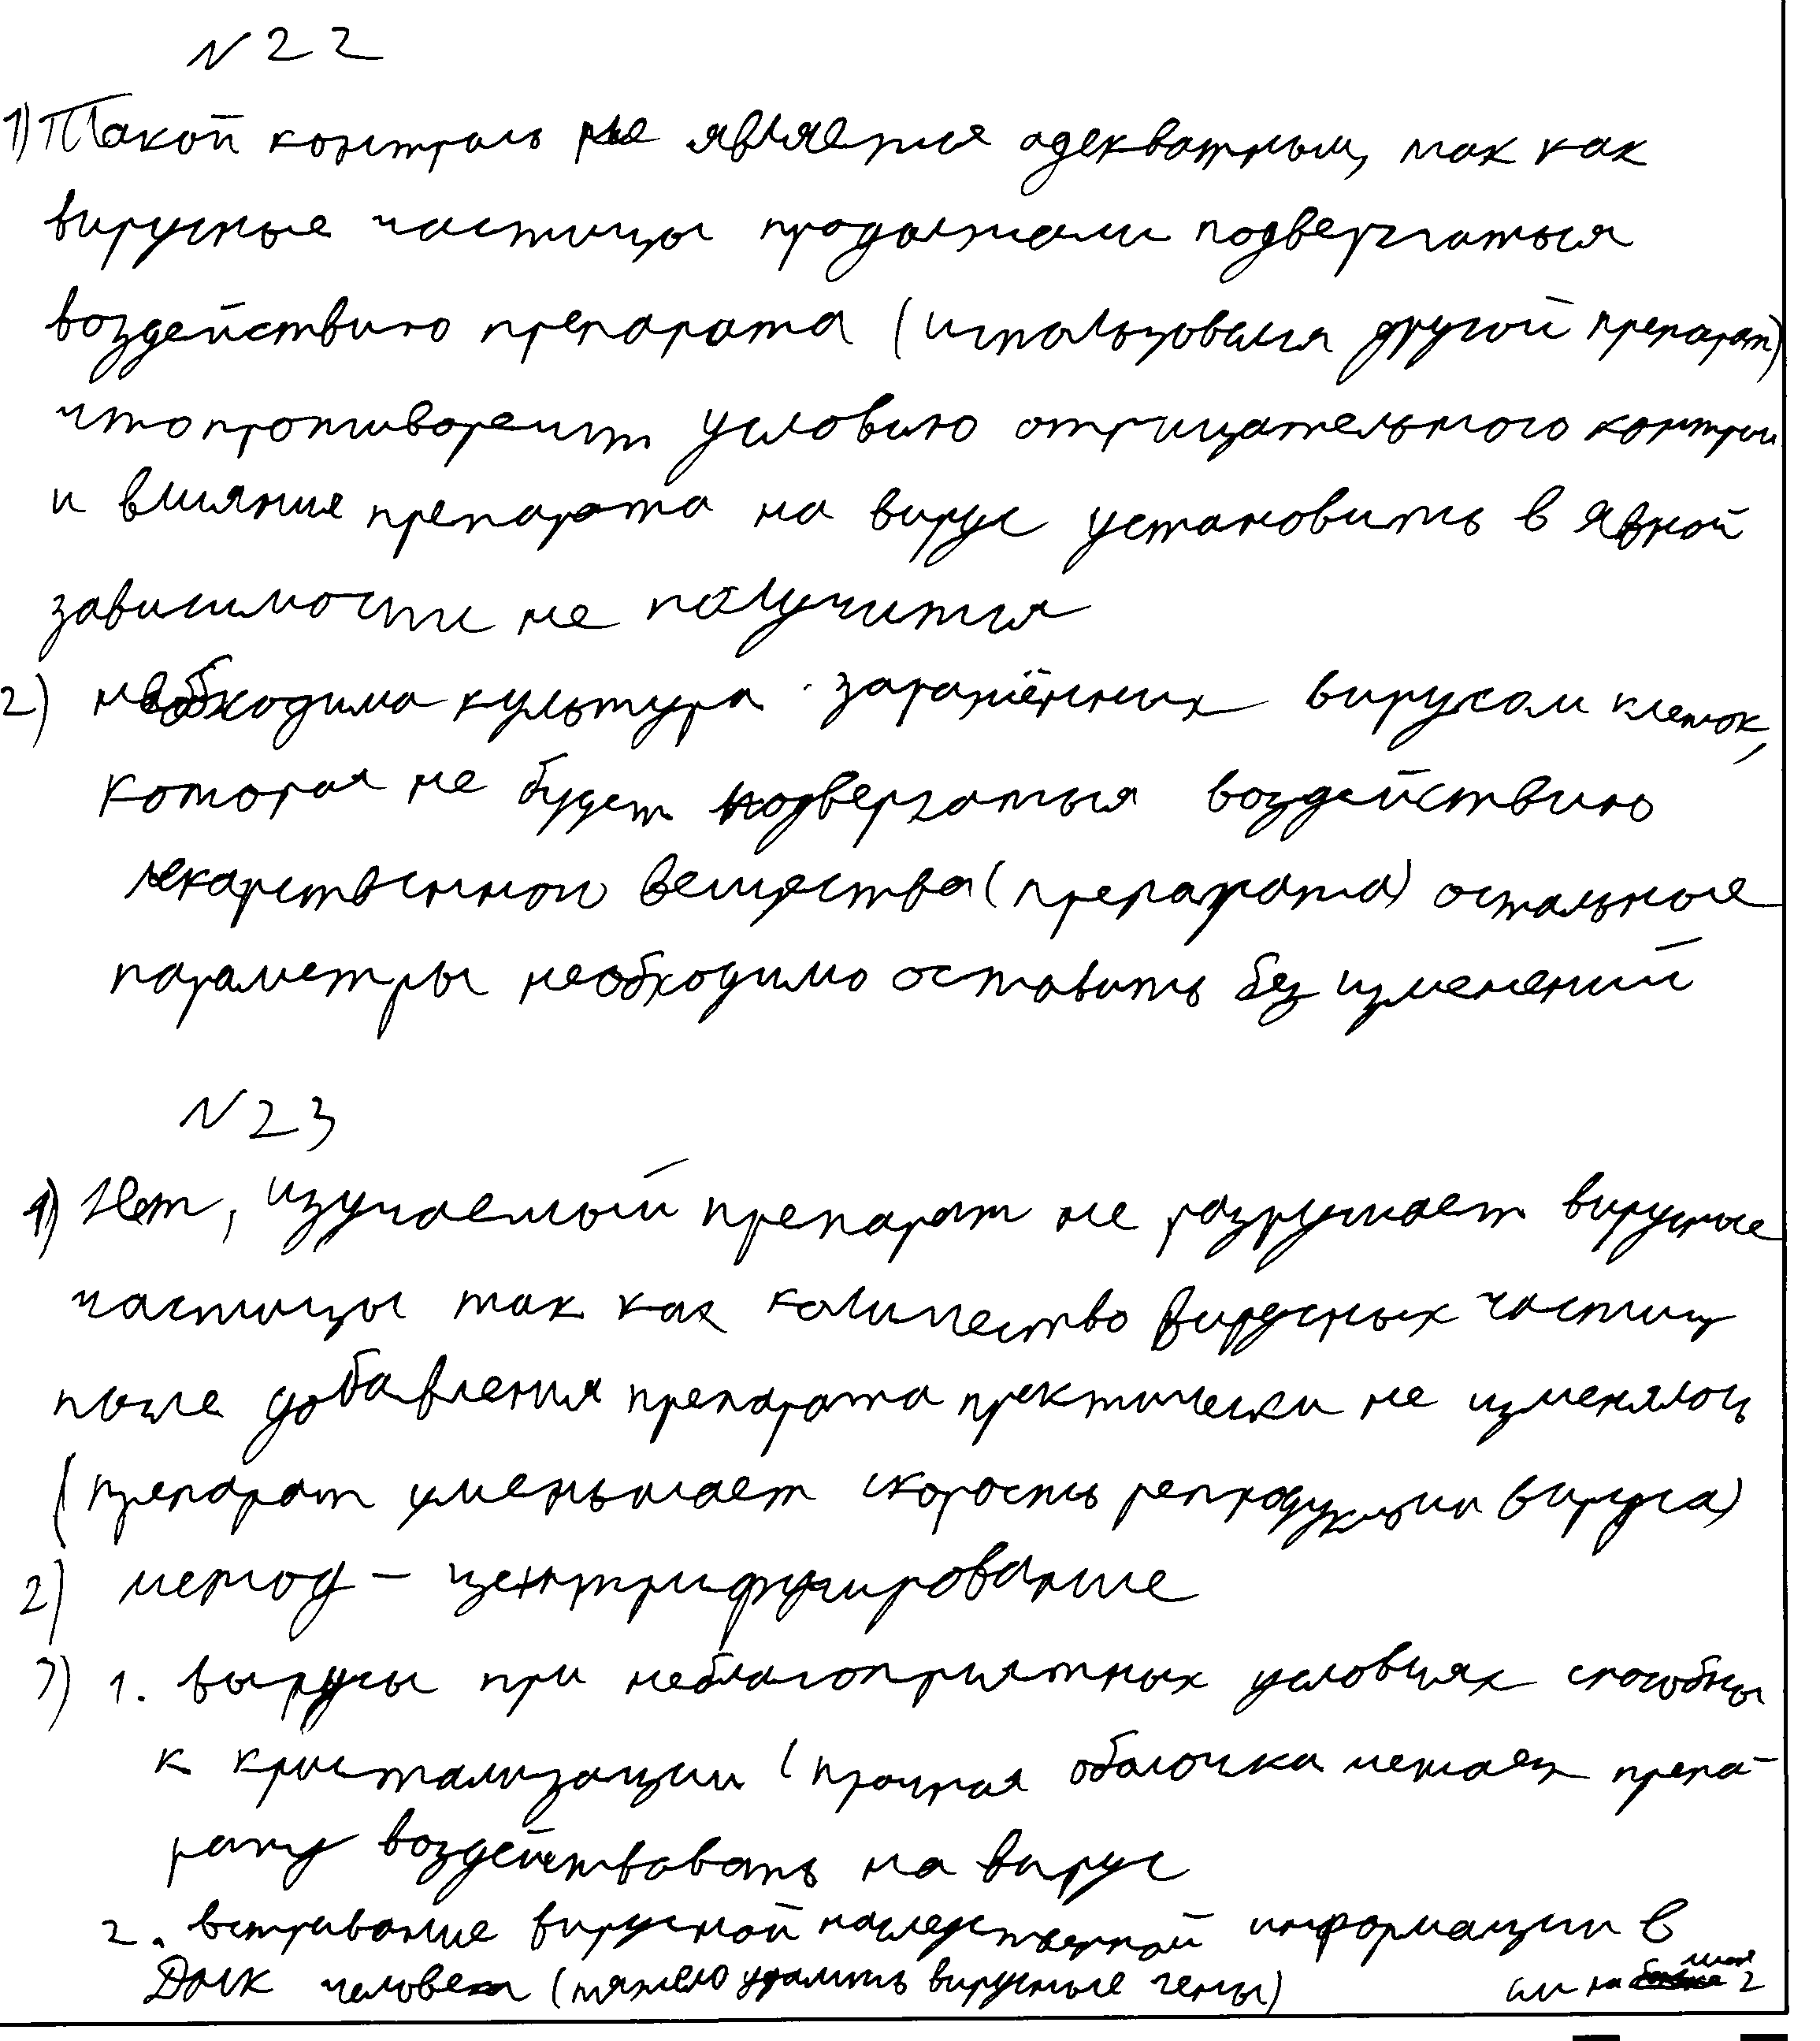 N 22
1) Такой контроль не является адекватным, так как
вирусные частицы продолжали подвергаться
воздействию препарата (использовался другой препарат)
что противоречит условию отрицательного контроля
и влияние препарата на вирус установить в явной
зависимости не получится
2) необходима культура заражённых вирусом клеток,
которая не будет подвергаться воздействию
лекарственного вещества (препарата) остальные
параметры необходимо оставить без изменений
N 23
1) Нет, изучаемый препарат не разрушает вирусные
частицы так как количество вирусных частиц
после добавления препарата прктически не изменялось
(препарат уменьшает скорость репродукции вируса)
2) метод - центрифугирование
3) 1. вырусы при неблагоприятных условиях способны
к кристализации (прочная оболочка мешает препа-
рату воздействовать на вирус
2. встривание вирусной наследственной информации в
Днк человека (тяжело удалить вирусные гены)
см на 2